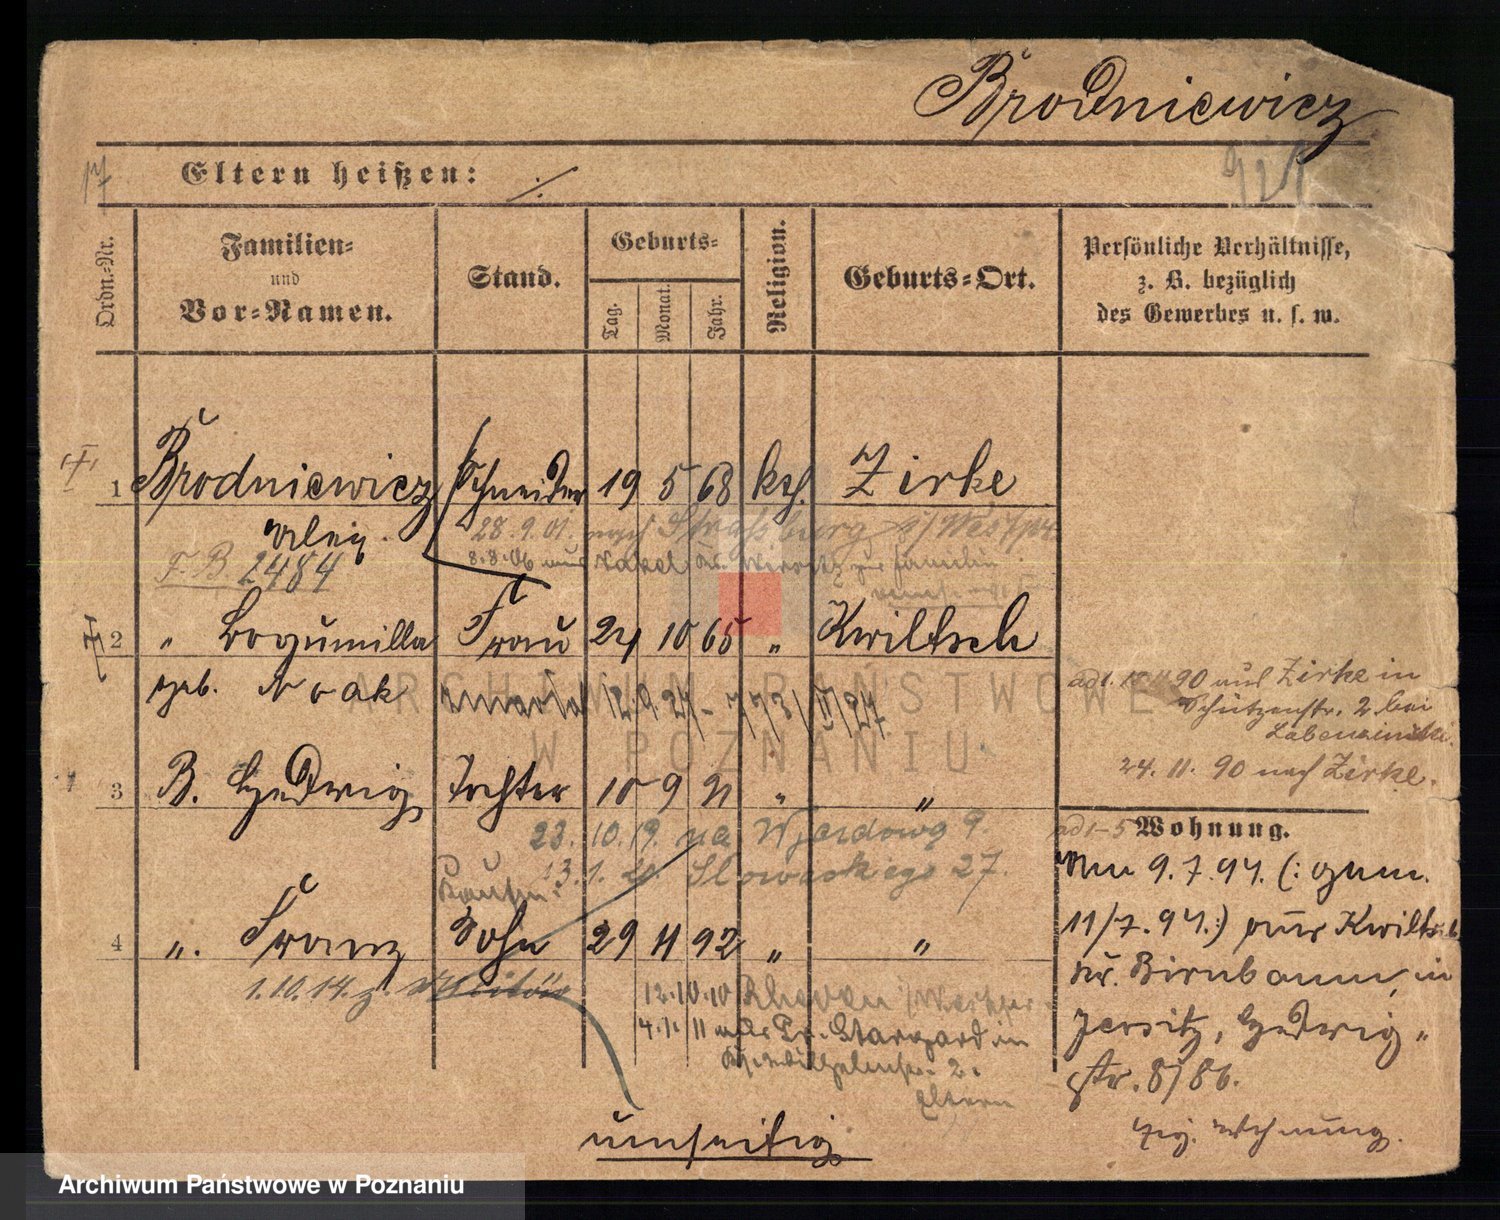 Brodniewicz
921
Eltern heißen: ./.
Ordn.=Nr.
Familien=
und
Vor=Namen.
Stand.
Geburts=
Tag.
Monat.
Jahr.
Religion.
Geburts=Ort.
Persönliche Verhältnisse,
z. B. bezüglich
des Gewerbes u. s. w.
1 Brodniewicz Schneider 19 5 68 kth. Zirke
28.9.01. nach Strassburg i/Westpr
F. B. 2484
8.8.06 aus Nakel Kr. Wirsitz zur Familie
2 " Bogumilla Frau 24 10 65 " Kwiltsch
geb. Nowak
12.9.27
ad 1. 15.11.90 aus Zirke in
Schützenstr. 2 bei
24. 11. 90 nach Zirke.
3 B. Hedwig Tochter 10 9 91 " "
23. 10. 19. na Wjazdową 9.
13.1. Slowackiego 27.
4 ". Franz Sohn 29 11 92 " "
1.10.14. z. Militär
12.10.10
4.1.11 aus Pr. Stargard in
Wilhelmstr. 2.
Eltern
ad 1-5 Wohnung.
Am 9.7.94. (: gem.
11/7.94.:) aus Kwiltsch
Kr. Birnbaum, in
Jersitz, Hedwig"
str. 8/86.
Wohnung.
umseitig
ARCHIWUM PAŃSTWOWE
W POZNANIU
Archiwum Państwowe w Poznaniu